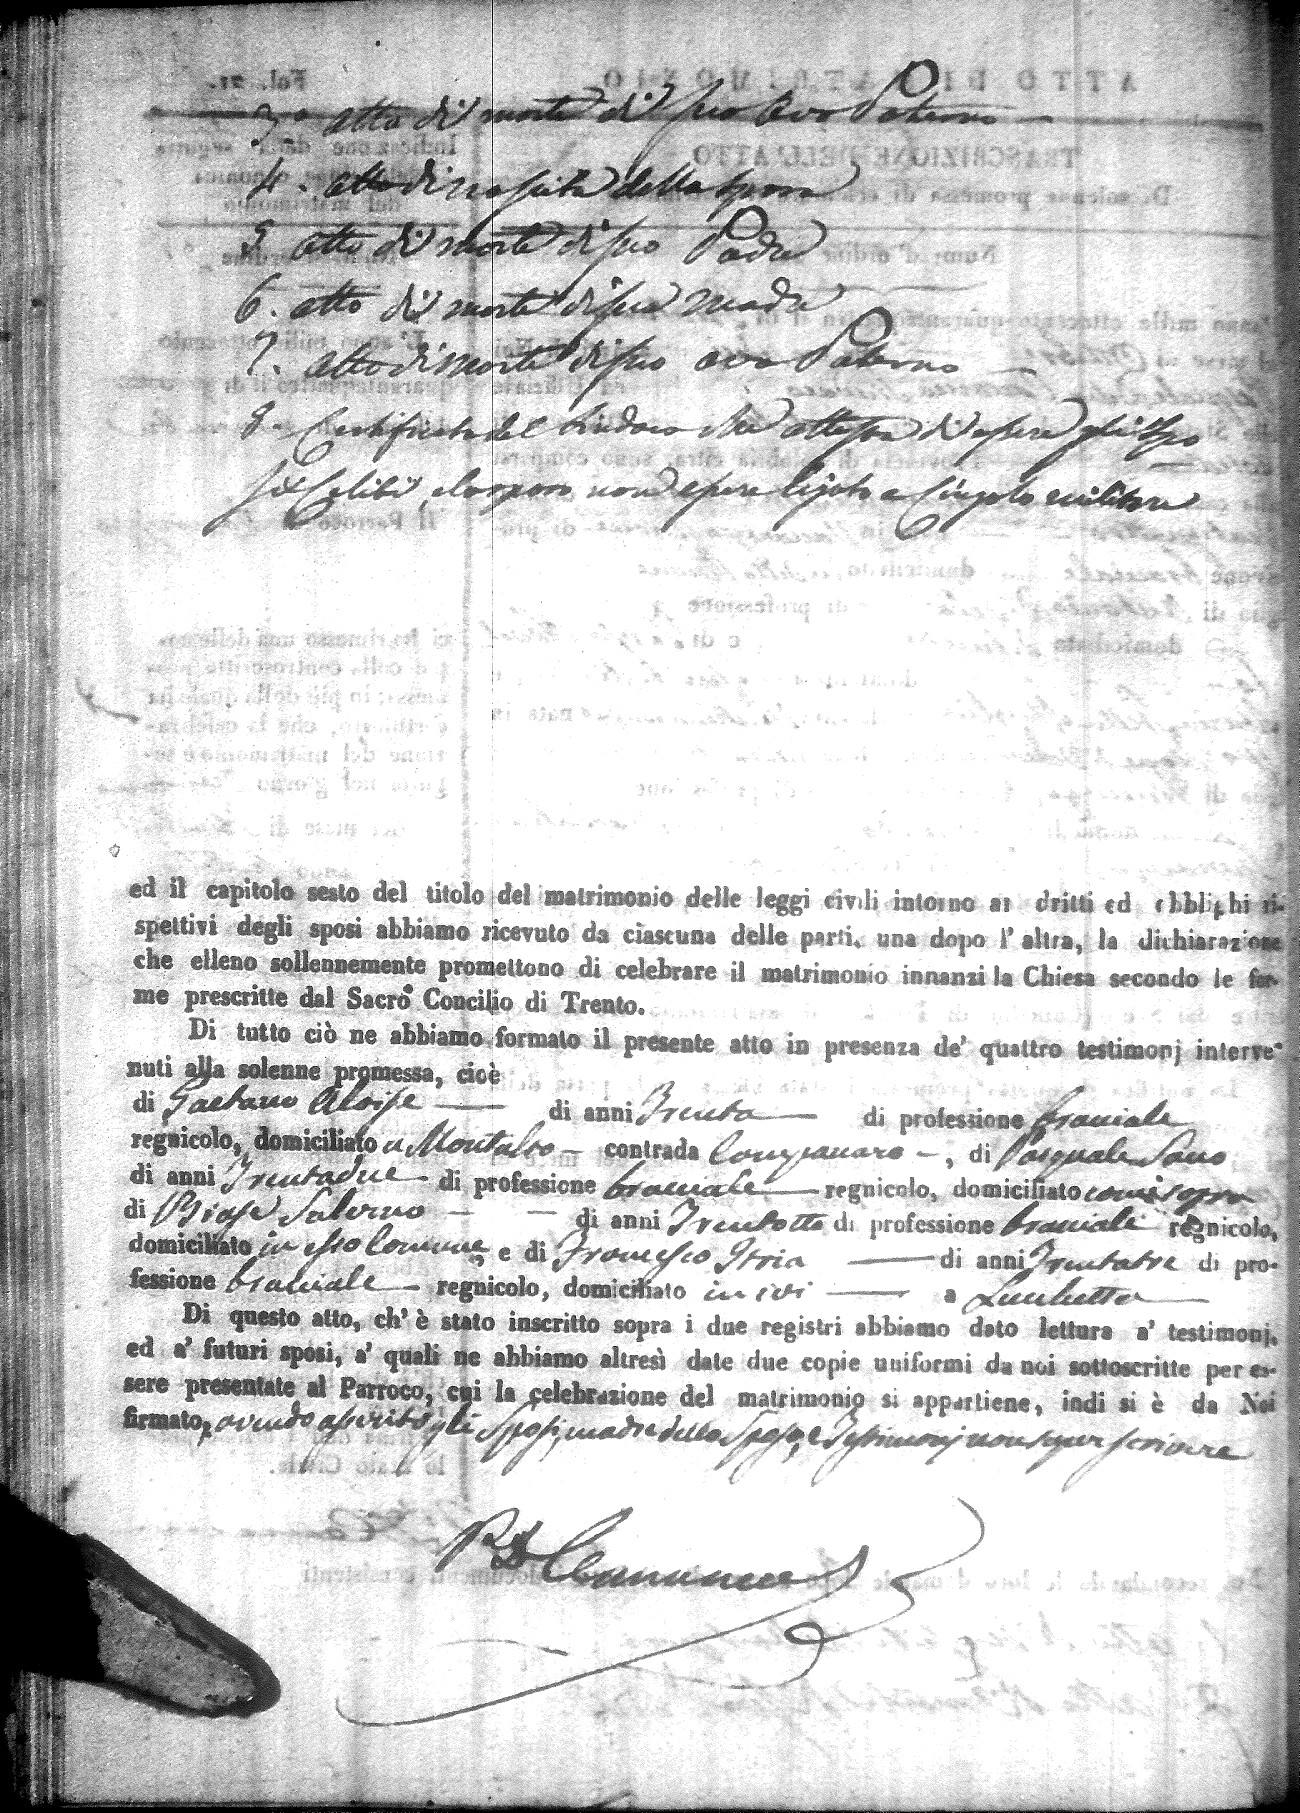 3.º atto di morte di suo avo Paterno
4. atto di nascita della sposa
5. atto di morte di suo Padre
6. atto di morte di sua madre
7. atto di morte di suo avo Paterno
8. Certificato del Sindaco che attesta di essere gli
Celibi, e lo sposo non essere ligato a Cingolo militare
ed il capitolo sesto del titolo del matrimonio delle leggi civili intorno ai dritti ed obblighi ri-
spettivi degli sposi abbiamo ricevuto da ciascuna delle parti, una dopo l' altra, la dichiarazione
che elleno sollennemente promettono di celebrare il matrimonio innanzi la Chiesa secondo le for-
me prescritte dal Sacro Concilio di Trento.
Di tutto ciò ne abbiamo formato il presente atto in presenza de' quattro testimonj interve-
nuti alla solenne promessa, cioè
di Gaetano Aloise di anni Trenta di professione bracciale
regnicolo, domiciliato a Montalto contrada , di Pasquale
di anni Trentadue di professione bracciale regnicolo, domiciliato come sopra
di Biase Salerno di anni Trentotto di professione bracciale regnicolo,
domiciliato in esso Comune e di Francesco Itria di anni Trentatre di pro-
fessione bracciale regnicolo, domiciliato in ivi a
Di questo atto, ch' è stato inscritto sopra i due registri abbiamo dato lettura a' testimonj,
ed a' futuri sposi, a' quali ne abbiamo altresì date due copie uniformi da noi sottoscritte per es-
sere presentate al Parroco, cui la celebrazione del matrimonio si appartiene, indi si è da Noi
firmato, avendo asserito gli Sposi, madre dello Sposo, e Testimonj non saper scrivere